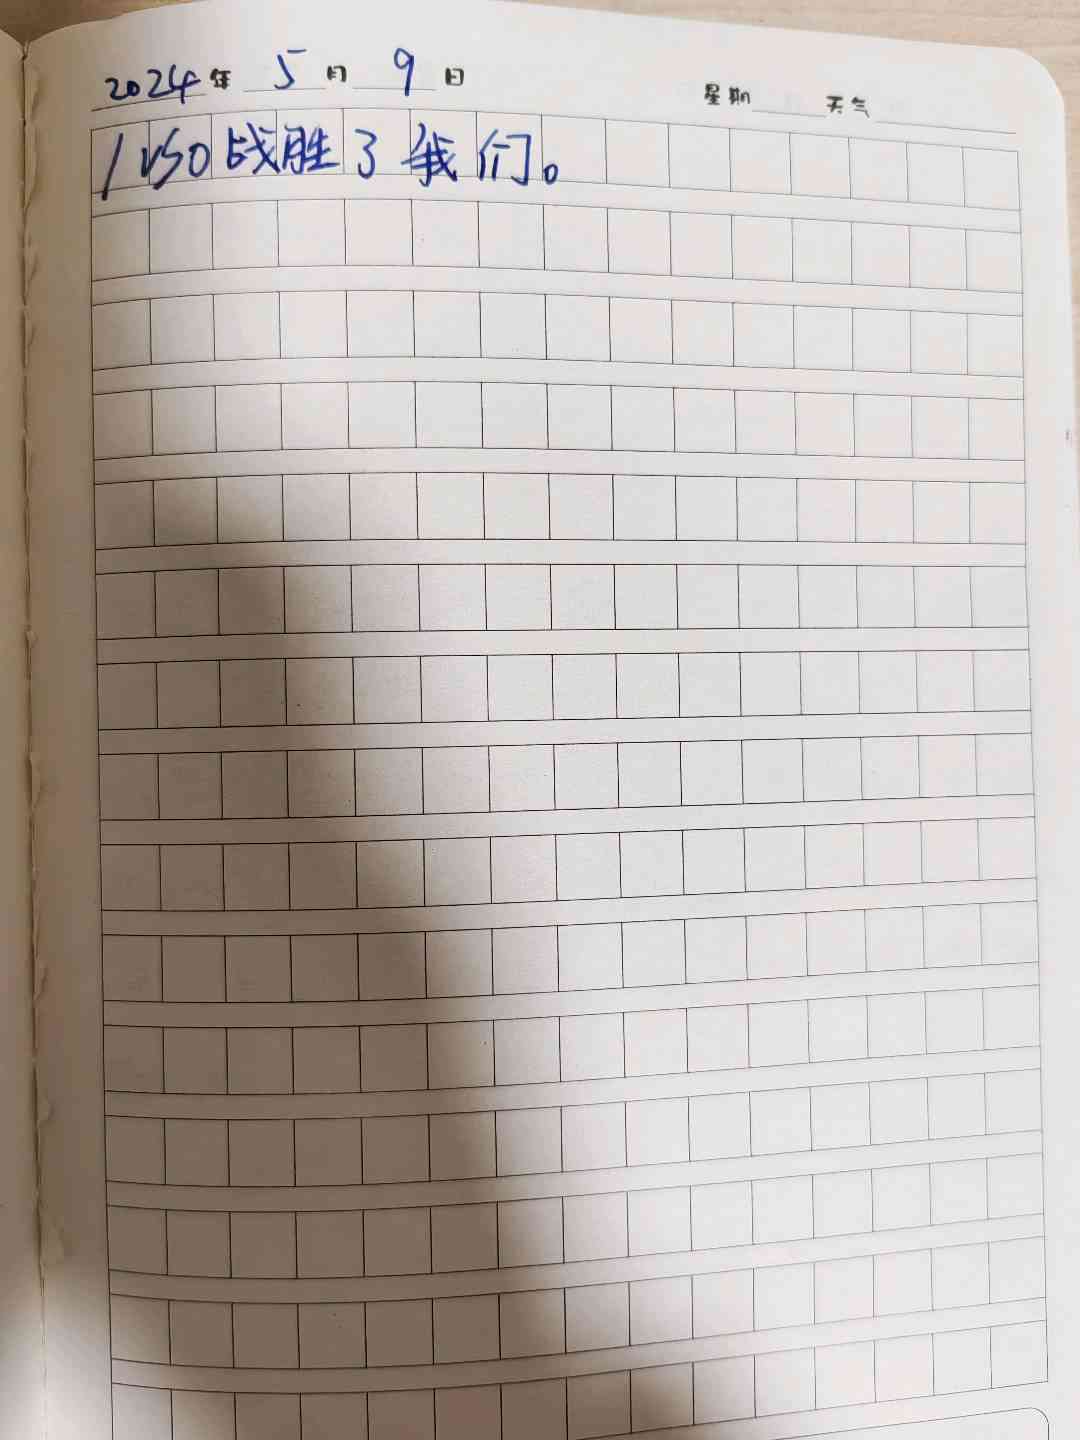 2024年 5月 9日 星期 天气
1VS0战胜了我们。